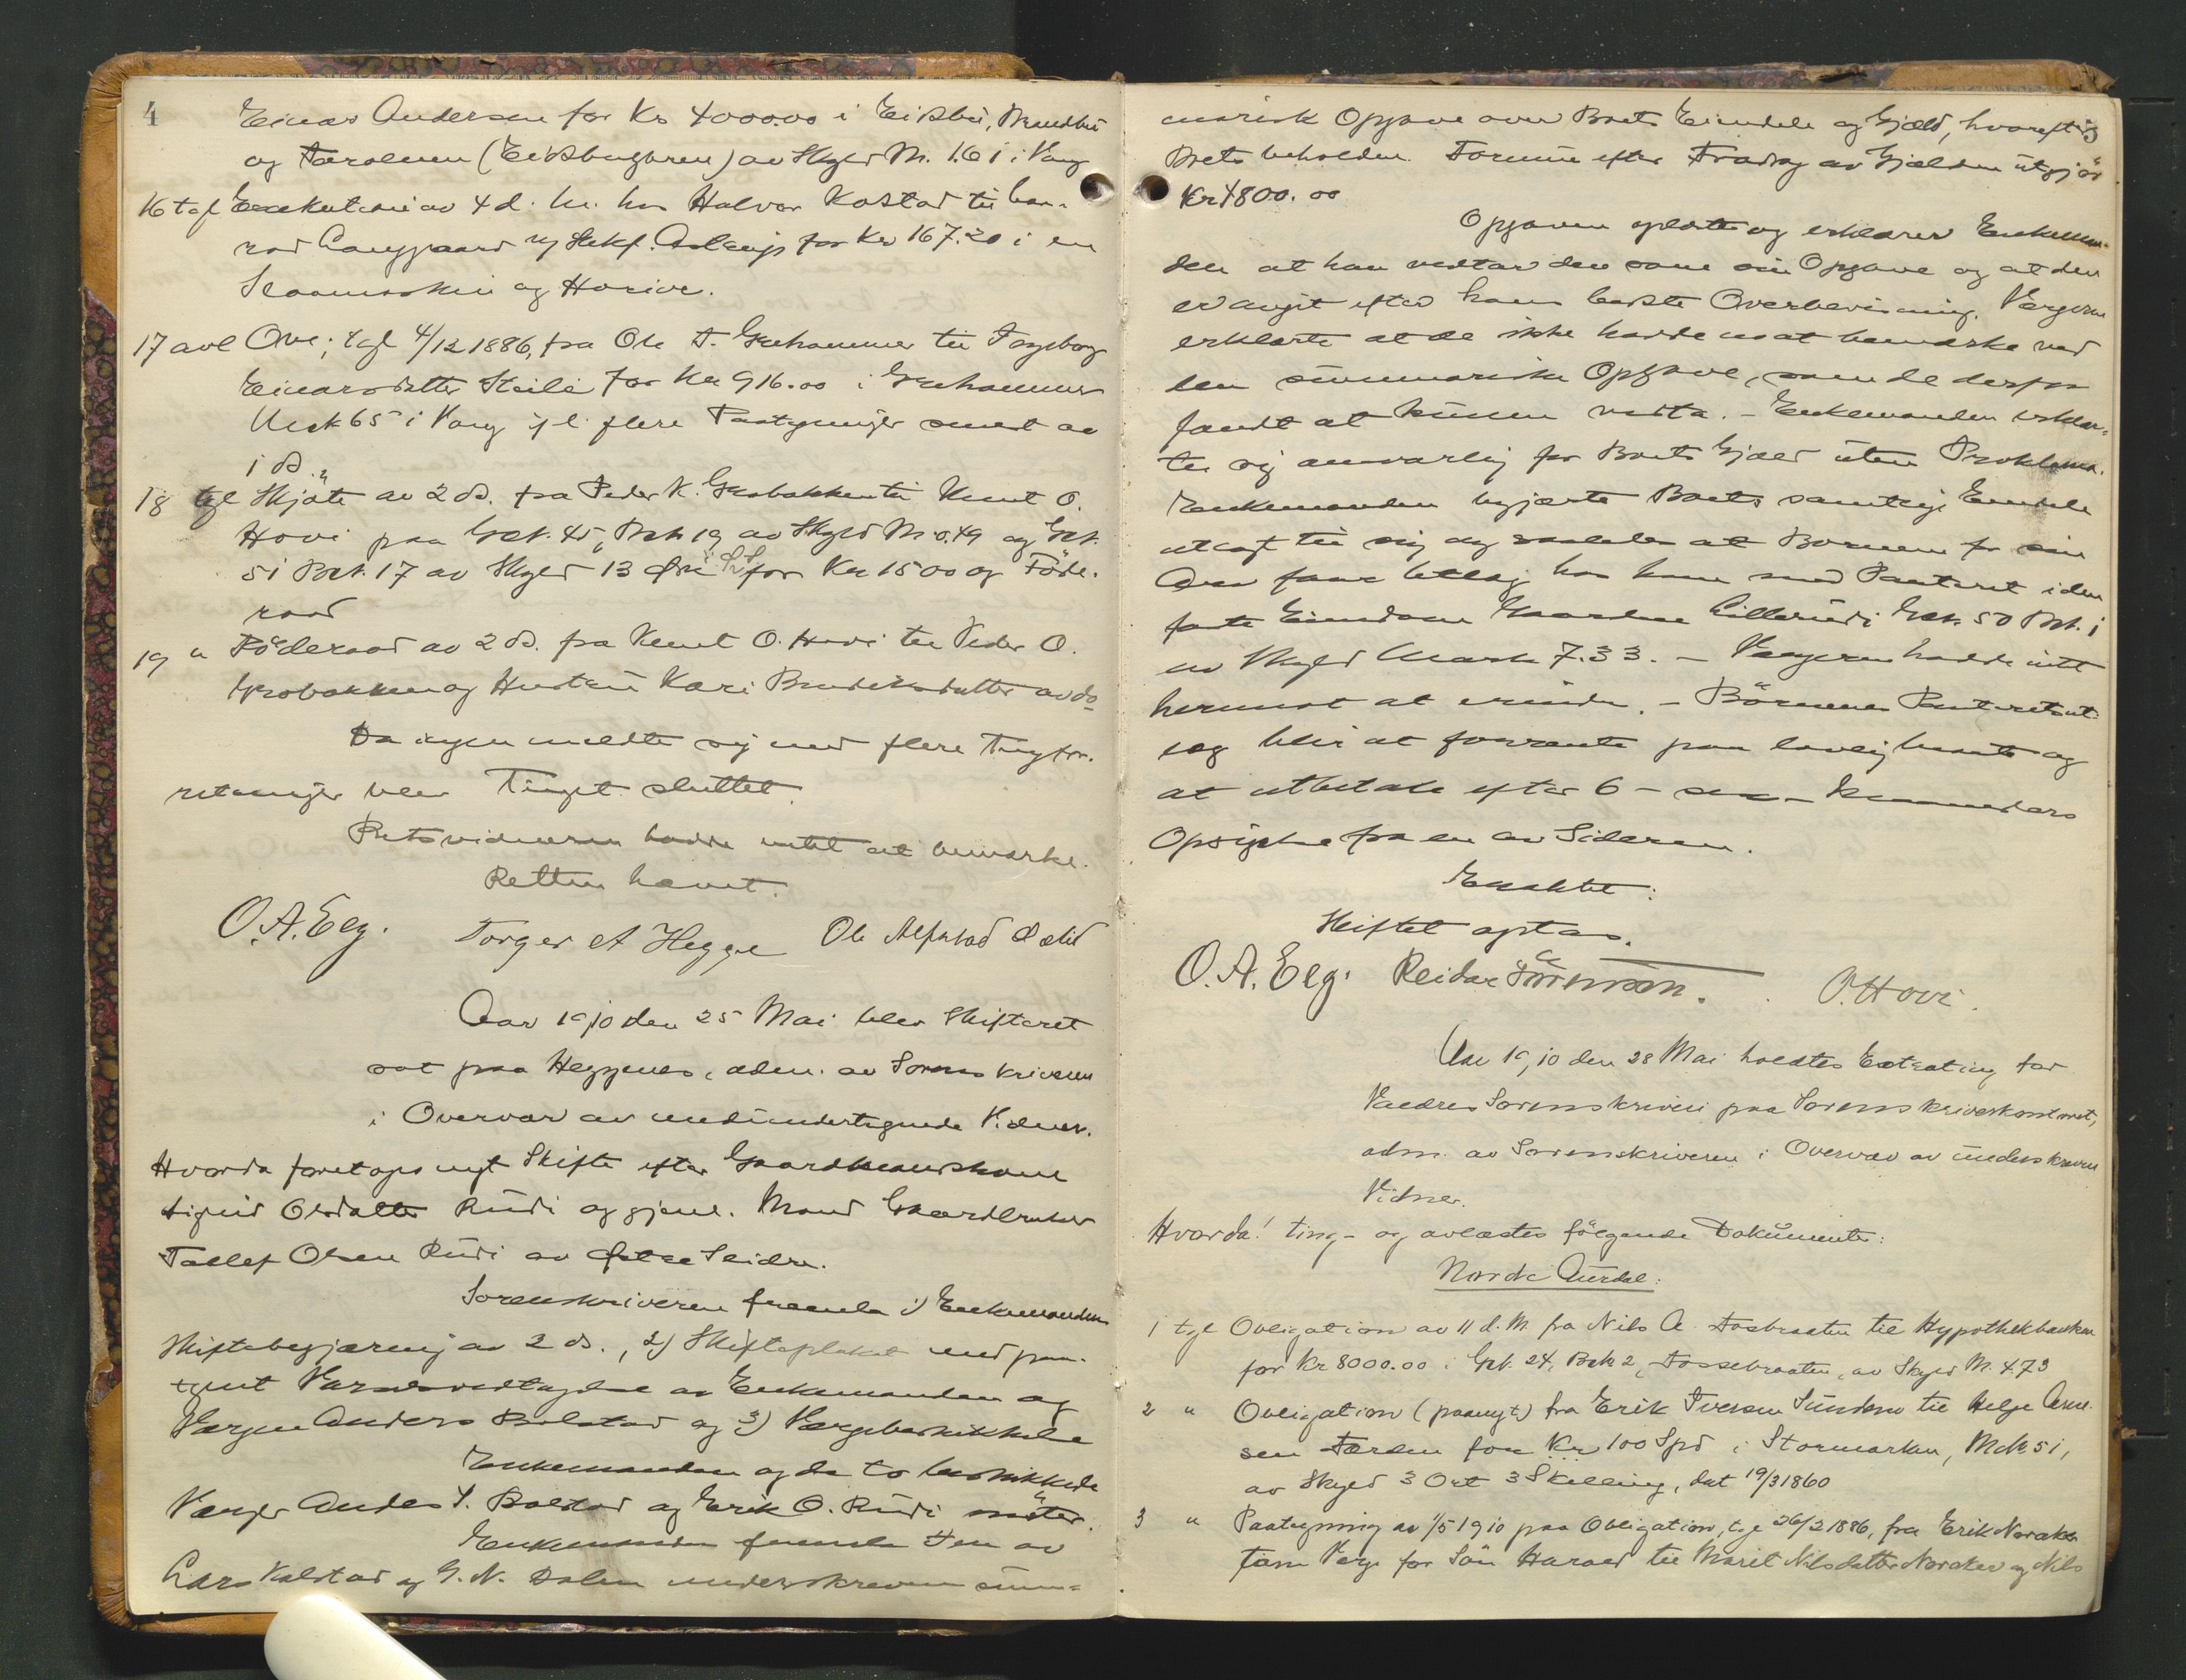 4
Einar Andersen for Kr 4000.00 i Eidsbu, Brandbu
og (Eidsbugaren) av Skyld M. 1.61 i Vang
16 tgl av 4 d. M. hos Halvor Kattad til Con-
rad Langgaard v/ Sakf. Astrup for Kr 167.20 i en
og Harive.
17 avl Obl; tgl 4/12 1886, fra Ole T. Grehammer til Ingeborg
Einarsdatter Steile for Kr 916.00 i Grehammer
Mnk 65 i Vang if l. flere Paategninger senest av
i ds.
18 tgl Skjöte av 2 ds. fra Peder K. Grobakken til Knut O.
Hovi paa Gnk. 45, Brk. 19 av Skyld M 0.49 og Gnk.
51 Brk. 17 av Skyld 13 Øre for Kr 1500 og Föde-
raad
19 " Föderaad av 2 ds. fra Knut O. Hovi til Peder O.
Grobakken og Hustru Kari Bendiksdatter av do
Da ingen meldte sig med flere Tingfor-
retninger blev Tinget sluttet.
Retsvidnerne hadde intet at bemærke.
Retten hævet.
O. A. Eeg. Torger A Hegge Ole Alfstad
Aar 1910 den 25 Mai blev Skifteret
sat paa Heggenes, adm. av Sorenskriveren
i Overvær av medundertegnede Vidner.
Hvorda foretoges nyt Skifte efter Gaardmandskone
Sigrid Olsdatter Rudi og gjenl. Mand Gaardbruker
Tollef Olsen Rudi av Østre Slidre.
Sorenskriveren fremla 1) Enkemandens
Skiftebegjæring av 2 ds., 2) Skifteplakat med paa-
tegnt Varselsvedtagelse av Enkemanden og
Vergen Anders Bolstad og 3) Vergebeskikkelse
Enkemanden og de to beskikkede
Verger Anders T. Bolstad og Erik O. Rudi möter.
Enkemanden fremla den av
Lars Kalstad og G. N. Dalen underskrevne sum-
5
marisk Opgave over Boets Eiendele og Gjæld, hvorefter
Boets beholdne Formue efter Fradrag av Gjælden utgjör
Kr 4800.00
Opgaven oplæstes og erklærer Enkeman-
den at han vedtar den som sin Opgave og at den
er avgit efter hans bedste Overbevisning. Vergerne
erklærte at de ikke hadde noget at bemærke ved
den summariske Opgave, som de derfor
fandt at kunne vedta. - Enkemanden erklær-
te sig ansvarlig for Boets Gjæld uten Proklama.
Enkemanden begjærte Boets samtlige Eiendele
utlagt til sig og saaledes at Börnene for sin
Arv faar utlæg hos ham med Panteret i den
faste Eiendom Gaarden Lillerudi Gnk. 50 Brk. 1
av Skyld Mark 7.33. - Vergerne hadde intet
herimot at erindre. - Börnenes Panteretsut-
læg blir at forrente paa lovlig Maate og
at utbetale efter 6 - sex - Maaneders
Opsigelse fra en av Siderne.
Eragtet:
Skiftet optas.
O. A. Eeg. Reidar . O. Hovi.
Aar 1910 den 28 Mai holdtes Extrating for
Valdres Sorenskriveri paa Sorenskriverkontoret,
adm. av Sorenskriveren i Overvær av underskrevne
Vidner.
Hvorda! ting- og avlæstes fölgende Dokumenter:
Nordre Aurdal:
1 tgl Obligation av 11 d. M. fra Nils A. Fosbraaten til Hypothekbanken
for Kr 8000.00 i Gnk. 24, Brk 2, Fossebraaten, av Skyld M. 4.73
2 " Obligation (paanyt) fra Erik Iversen Sundem til Helge Arne-
sen for Kr 100 Spd i Stormarken, Mnk 51,
av Skyld 3 Ort 3 Skilling, dat 19/3 1860
3 " Paategning av 1/5 1910 paa Obligation, tgl 26/2 1886, fra Erik Noraker
som Verge for Sön Harald til Marit Nilsdatter Noraker og Nils